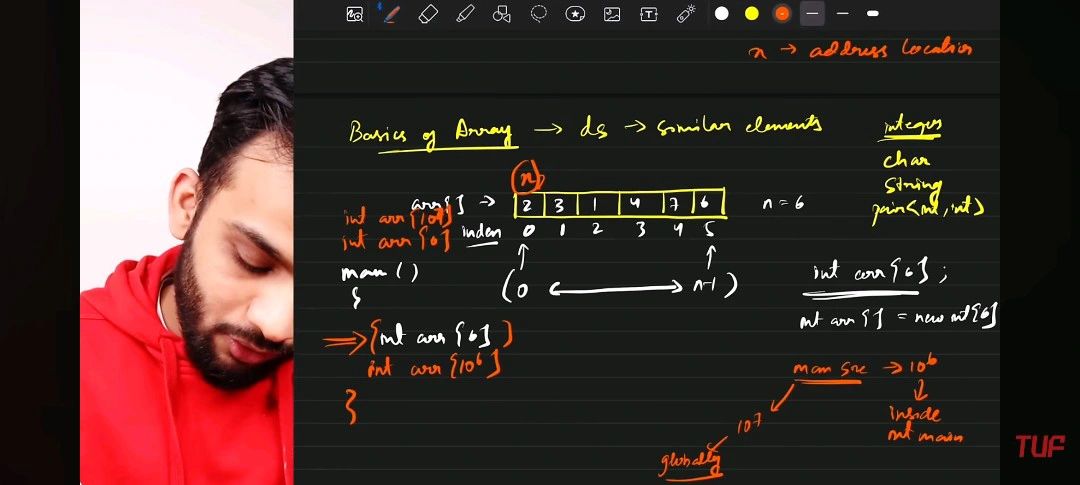 x → address location
Basics of Array → ds → similar elements
integers
char
string
pair<int, int>
x
arr[] → 2 3 1 4 7 6 n = 6
index 0 1 2 3 4 5
int arr[10⁷]
int arr[6]
main ()
{
(0 ⟷ n-1)
int arr[6];
int arr[] = new int[6]
⇒ [int arr[6]]
int arr[10⁶]
}
max size → 10⁶
↓
inside
int main
10⁷
globally
TUF